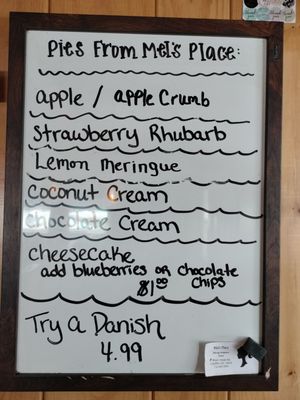 Pies From Mel's Place:
apple / apple Crumb
Strawberry Rhubarb
Lemon Meringue
Coconut Cream
chocolate Cream
cheesecake
add blueberries or chocolate
$1.00 chips
Try a Danish
4.99